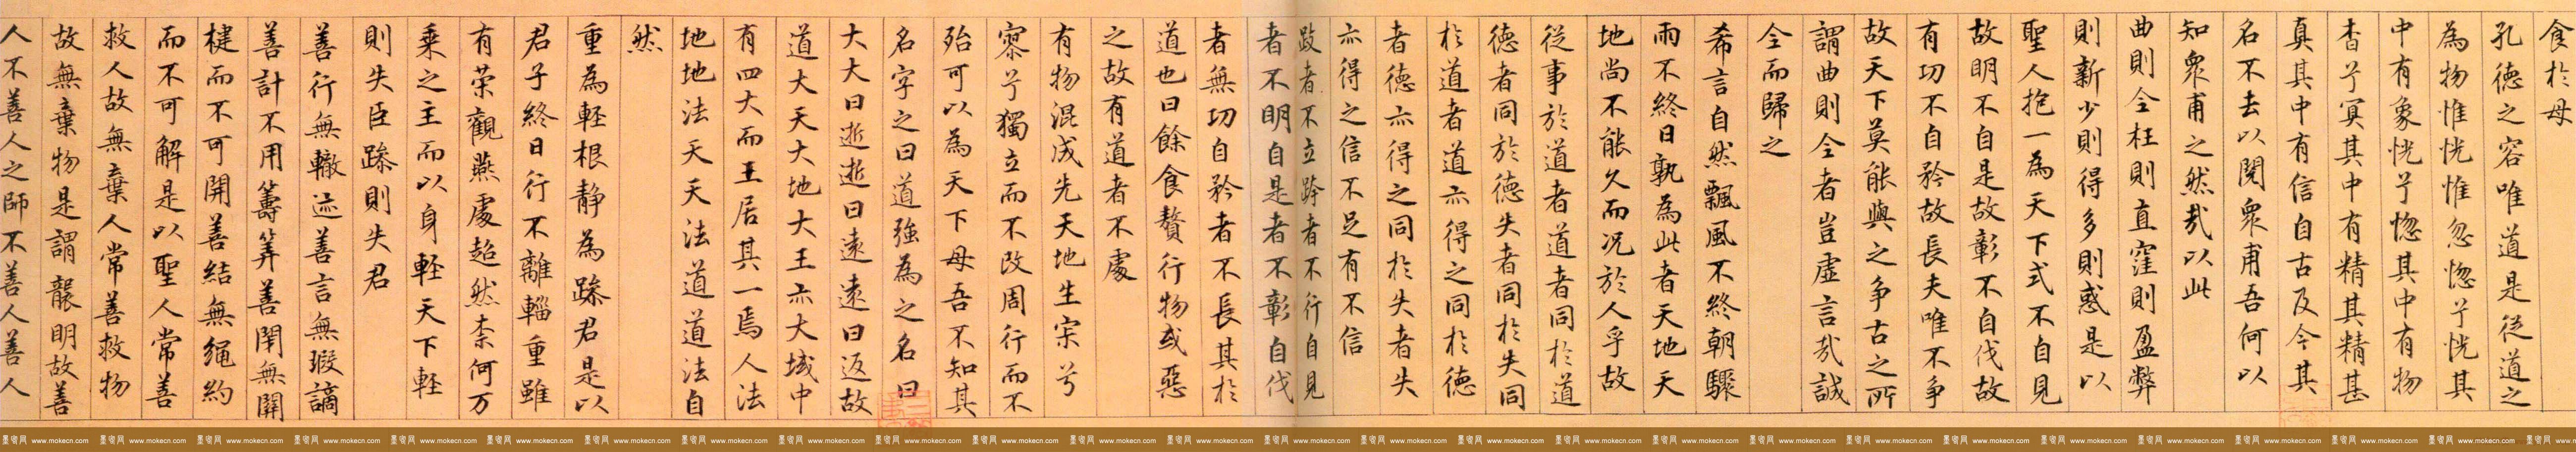 食於母
孔德之容唯道是從道之
為物惟恍惟忽惚兮恍其
中有象恍兮惚其中有物
杳兮冥其中有精其精甚
真其中有信自古及今其
名不去以閱眾甫吾何以
知眾甫之然哉以此
曲則全枉則直窪則盈弊
則新少則得多則惑是以
聖人抱一為天下式不自見
故明不自是故彰不自伐故
有功不自矜故長夫唯不爭
故天下莫能與之爭古之所
謂曲則全者豈虛言哉誠
全而歸之
希言自然飄風不終朝驟
雨不終日孰為此者天地天
地尚不能久而況於人乎故
從事於道者道者同於道
德者同於德失者同於失同
於道者道亦得之同於德
者德亦得之同於失者失
亦得之信不足有不信
跂者不立跨者不行自見
者不明自是者不彰自伐
者無功自矜者不長其於
道也曰餘食贅行物或惡
之故有道者不處
有物混成先天地生宗兮
寥兮獨立而不改周行而不
殆可以為天下母吾不知其
名字之曰道強為之名曰
大大曰逝逝曰遠遠曰返故
道大天大地大王亦大域中
有四大而王居其一焉人法
地地法天天法道道法自
然
重為輕根靜為躁君是以
君子終日行不離輜重雖
有榮觀燕處超然柰何万
乘之主而以身輕天下輕
則失臣躁則失君
善行無轍迹善言無瑕謫
善計不用籌筭善閉無關
楗而不可開善結無繩約
而不可解是以聖人常善
救人故無棄人常善救物
故無棄物是謂襲明故善
人不善人之師不善人善人
墨客网 www.mokecn.com